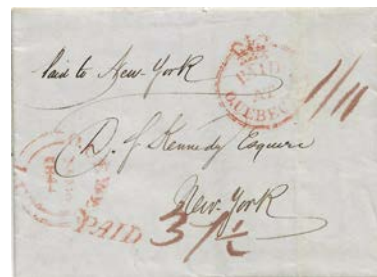 Paid to New-York
PAID
AT
QUEBEC
1/11
D. S. Kennedy Esquire
New-York
PAID
37½